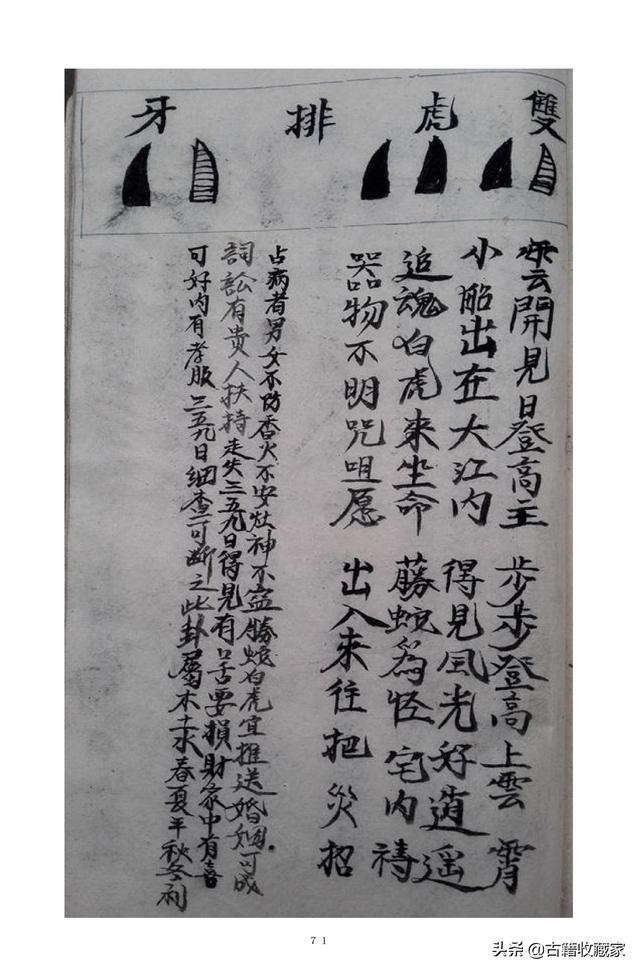 雙虎排牙
雲開見日登高主 步步登高上雲霄
小船出在大江内 得見風光好逍遥
追魂白虎來坐命 藤蛇為怪宅内禱
器物不明咒咀愿 出入來往把災招
占病者男女不防香火不安灶神不寍勝蛇白虎宜推送婚姻可成
詞訟有貴人扶持走失三五九日得見有口舌要損財家中有喜
可好内有孝服三五九日細查可断之此卦屬木土水春夏平秋冬利
71
头条@古籍收藏家